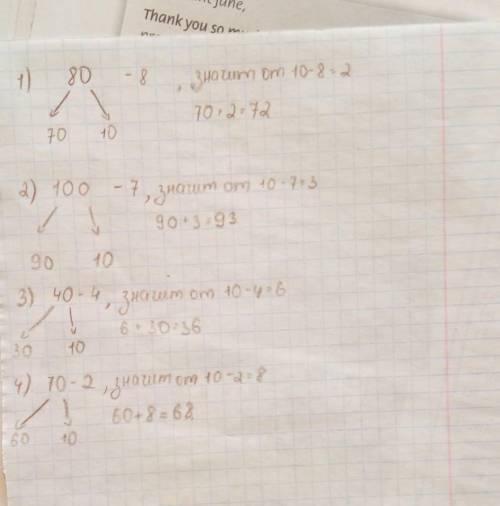 June,
Thank you so
1) 80 - 8 , значит от 10-8=2
70+2=72
70 10
2) 100 - 7, значит от 10-7=3
90+3=93
90 10
3) 40-4, значит от 10-4=6
6+30=36
30 10
4) 70-2, значит от 10-2=8
60+8=68
60 10